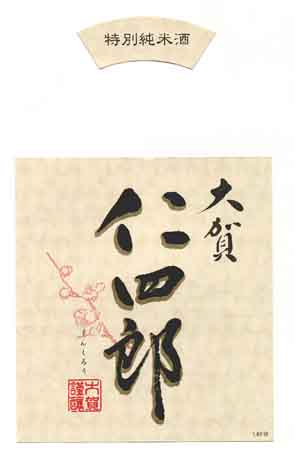 特別純米酒
大賀
仁四郎
じんしろう
大賀
謹醸